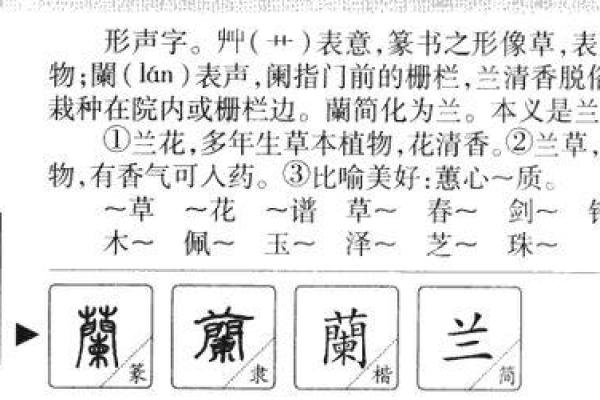 形声字。艸(艹)表意,篆书之形像草,表
物;闌(lán)表声,阑指门前的栅栏,兰清香脱俗
栽种在院内或栅栏边。蘭简化为兰。本义是兰
①兰花,多年生草本植物,花清香。②兰草,
物,有香气可入药。③比喻美好:蕙心~质。
~草 ~花 ~谱 草~ 春~ 剑~
木~ 佩~ 玉~ 泽~ 芝~ 珠~
蘭 篆 蘭 隶 蘭 楷 兰 简